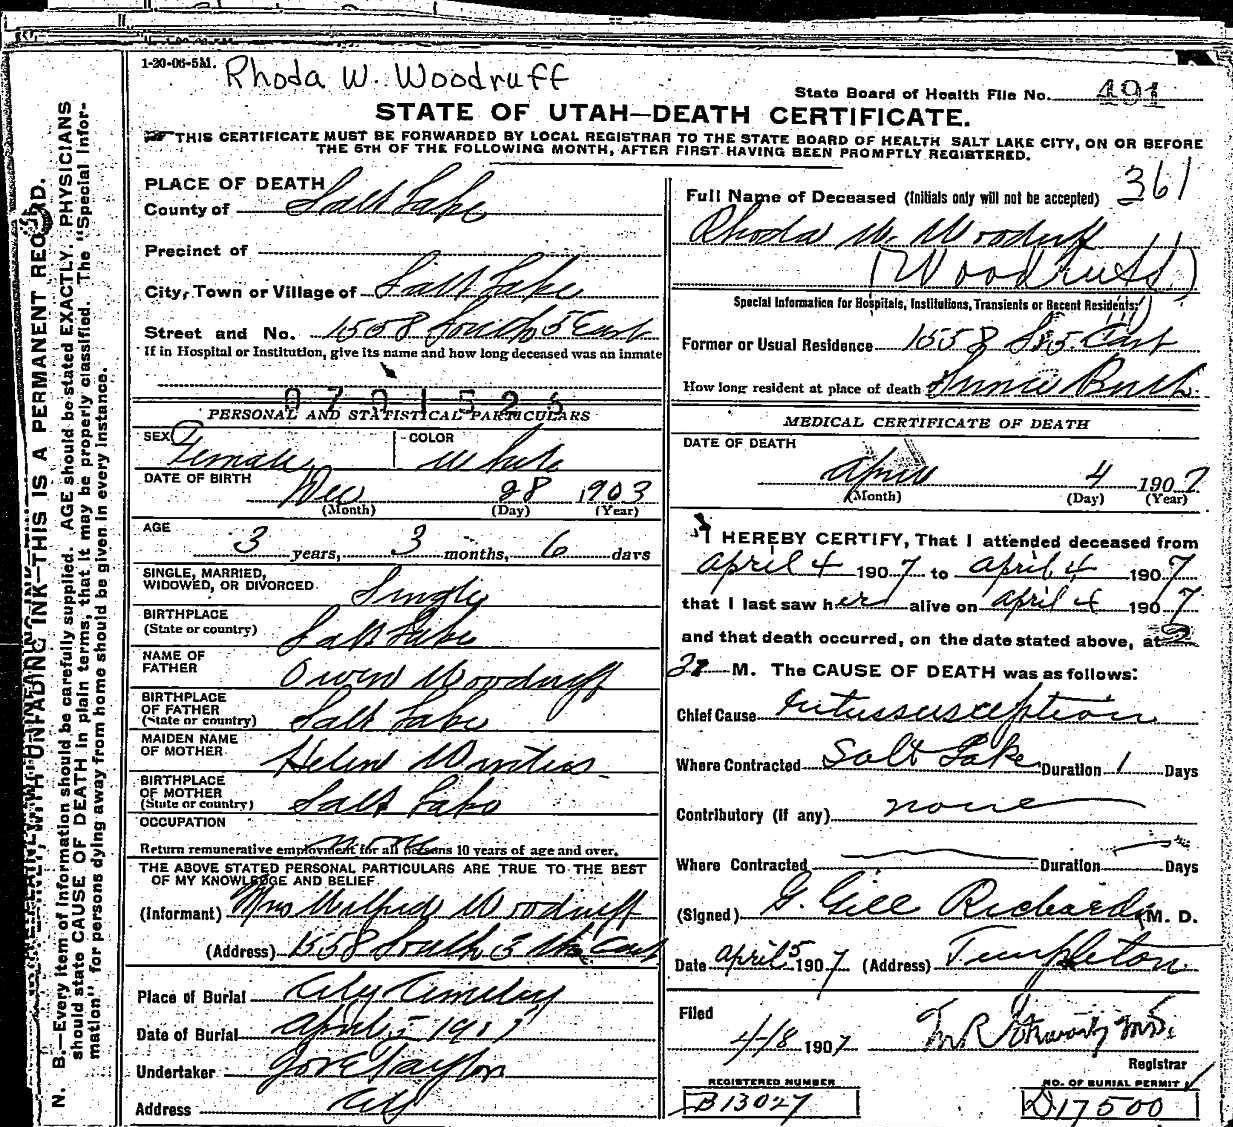 1-20-06-5M. Rhoda W. Woodruff
State Board of Health File No. 491
STATE OF UTAH—DEATH CERTIFICATE.
THIS CERTIFICATE MUST BE FORWARDED BY LOCAL REGISTRAR TO THE STATE BOARD OF HEALTH SALT LAKE CITY, ON OR BEFORE
THE 5TH OF THE FOLLOWING MONTH, AFTER FIRST HAVING BEEN PROMPTLY REGISTERED.
N. B.—Every item of information should be carefully supplied. AGE should be stated EXACTLY. PHYSICIANS
should state CAUSE OF DEATH in plain terms, that it may be properly classified. The "Special Infor-
mation" for persons dying away from home should be given in every instance.
WITH UNFADING INK—THIS IS A PERMANENT RECORD.
PLACE OF DEATH
County of Salt Lake
Precinct of
City, Town or Village of Salt Lake
Street and No. 1558 South 5 East
If in Hospital or Institution, give its name and how long deceased was an inmate
PERSONAL AND STATISTICAL PARTICULARS
SEX Female COLOR White
DATE OF BIRTH Dec 28 1903
(Month) (Day) (Year)
AGE
3 years, 3 months, 6 days
SINGLE, MARRIED,
WIDOWED, OR DIVORCED. Single
BIRTHPLACE
(State or country) Salt Lake
NAME OF
FATHER Owen Woodruff
BIRTHPLACE
OF FATHER
(State or country) Salt Lake
MAIDEN NAME
OF MOTHER Helen Winters
BIRTHPLACE
OF MOTHER
(State or country) Salt Lake
OCCUPATION
none
Return remunerative employment for all persons 10 years of age and over.
THE ABOVE STATED PERSONAL PARTICULARS ARE TRUE TO THE BEST
OF MY KNOWLEDGE AND BELIEF.
(Informant) Mrs Wilford Woodruff
(Address) 1558 South 5 th East
Place of Burial City Cemetery
Date of Burial April 5 1907
Undertaker Jos E Taylor
Address City
361
Full Name of Deceased (Initials only will not be accepted)
Rhoda W. Woodruff
(Woodruff)
Special Information for Hospitals, Institutions, Transients or Recent Residents:
Former or Usual Residence 1558 So. 5. East
How long resident at place of death Since Birth
MEDICAL CERTIFICATE OF DEATH
DATE OF DEATH
April 4 1907
(Month) (Day) (Year)
I HEREBY CERTIFY, That I attended deceased from
April 4 1907 to April 4 1907
that I last saw her alive on April 4 1907
and that death occurred, on the date stated above, at
M. The CAUSE OF DEATH was as follows:
Chief Cause Intussusception
Where Contracted Salt Lake Duration 1 Days
Contributory (if any) none
Where Contracted Duration Days
(Signed) G. Gill Richards M. D.
Date April 5 1907 (Address) Templeton
Filed
4-18 1907
Registrar
REGISTERED NUMBER NO. OF BURIAL PERMIT
B13027 D17500